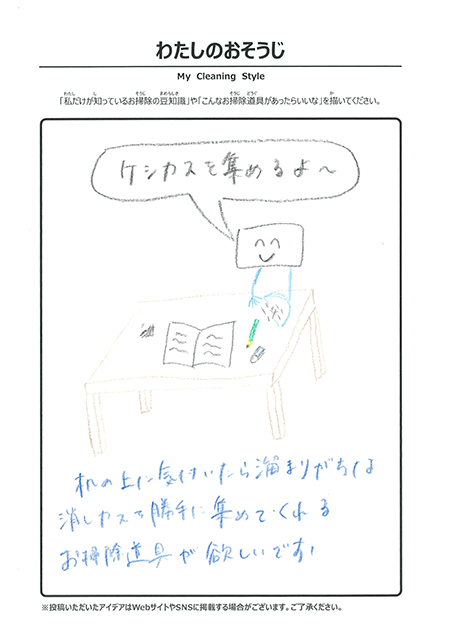 わたしのおそうじ
My Cleaning Style
「私だけが知っているお掃除の豆知識」や「こんなお掃除道具があったらいいな」を描いてください。
ケシカスを集めるよ〜
机の上に気付いたら溜まりがちな
消しカスを勝手に集めてくれる
お掃除道具が欲しいです!
※投稿いただいたアイデアはWebサイトやSNSに掲載する場合がございます。ご了承ください。